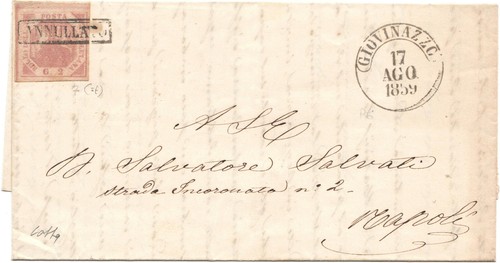 POSTA
ANNULLATO
G. 2
GIOVINAZZO
17
AGO
1859
A S E
D. Salvatore Salvati
strada Incoronata n° 2
Napoli